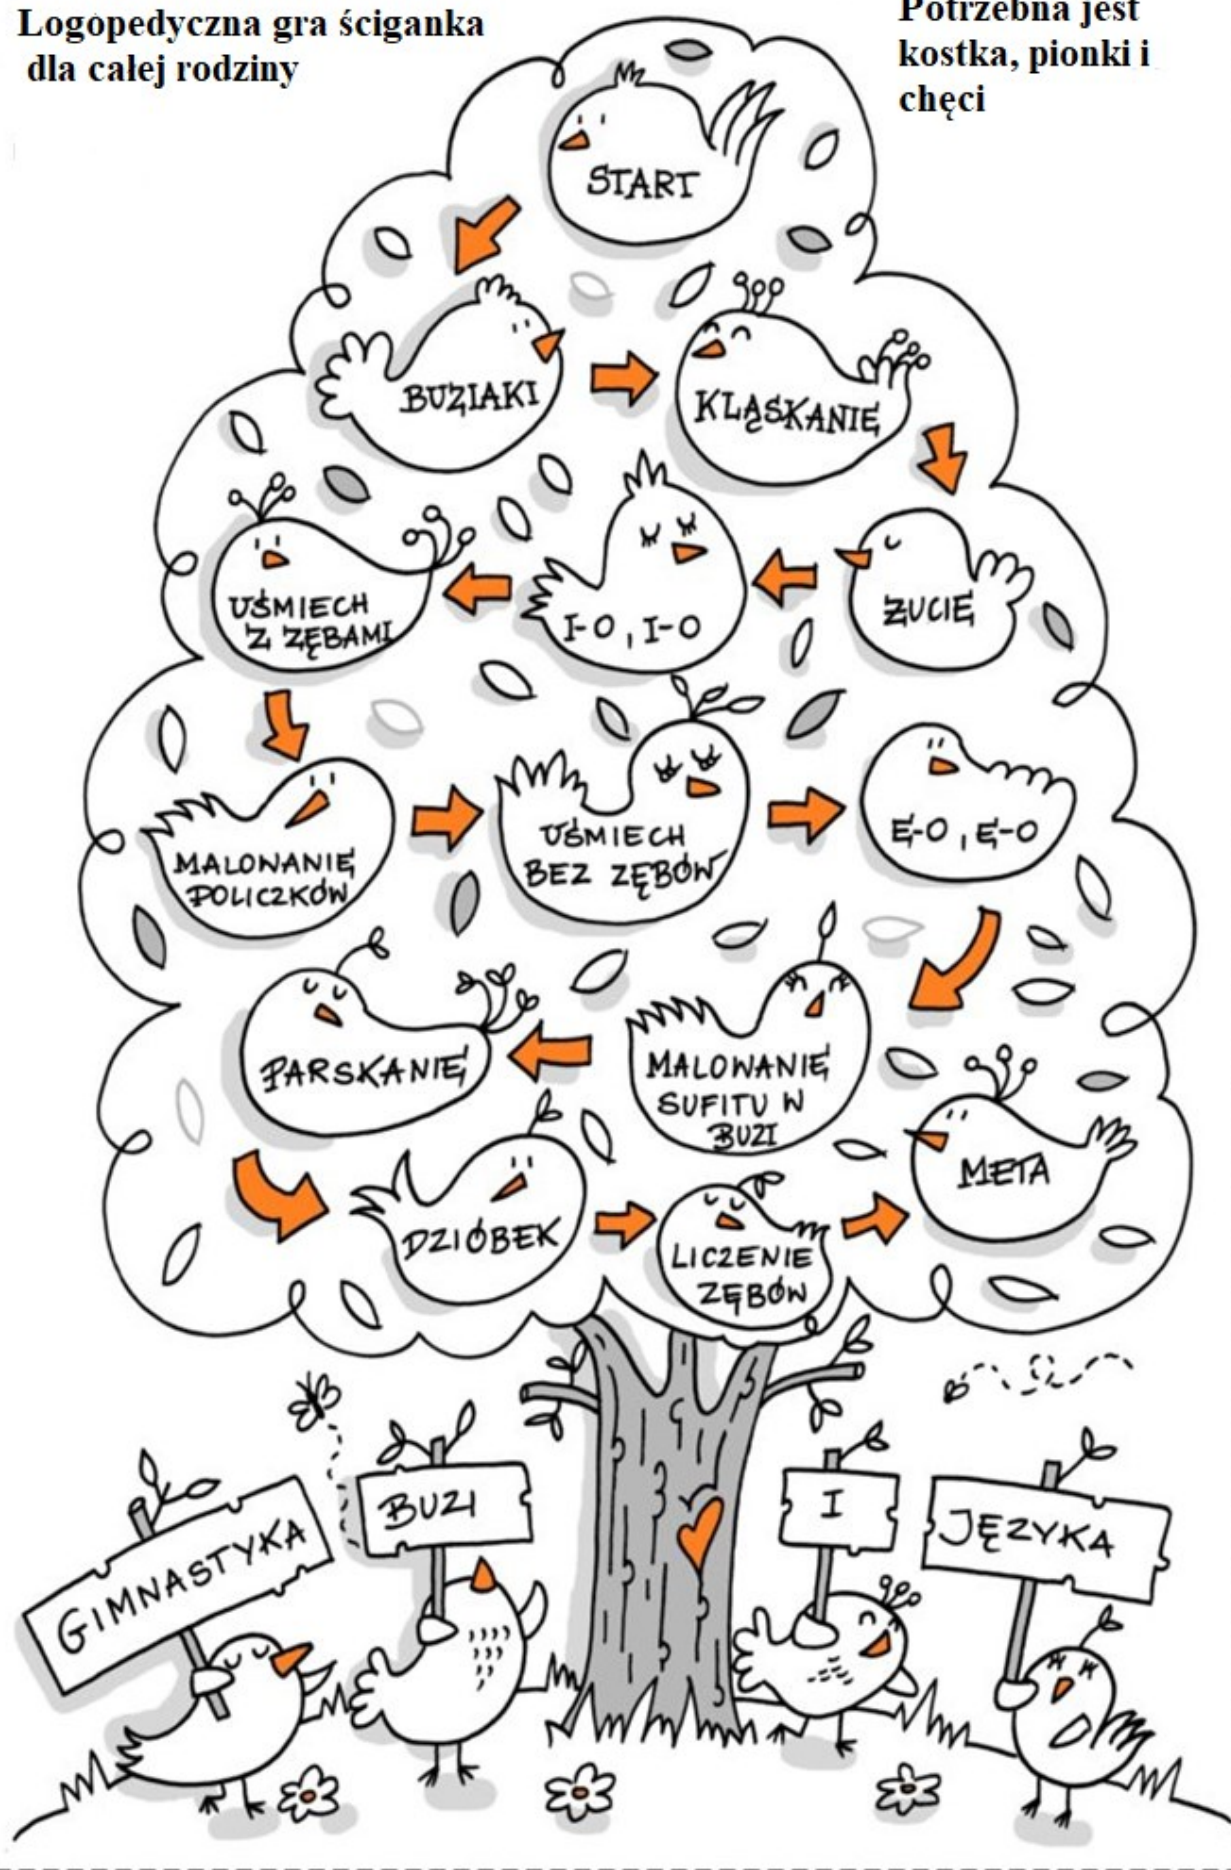 Logopedyczna gra ściganka
dla całej rodziny
Potrzebna jest
kostka, pionki i
chęci
START
BUZIAKI
KLĄSKANIE
ŻUCIE
I-O, I-O
UŚMIECH
Z ZĘBAMI
MALOWANIE
POLICZKÓW
UŚMIECH
BEZ ZĘBÓW
E-O, E-O
MALOWANIE
SUFITU W
BUZI
PARSKANIE
DZIÓBEK
LICZENIE
ZĘBÓW
META
GIMNASTYKA
BUZI
I
JĘZYKA